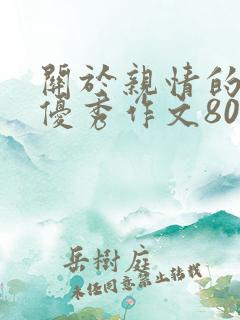 關於親情的
優秀作文80
岳樹庭
未經同意禁止轉載